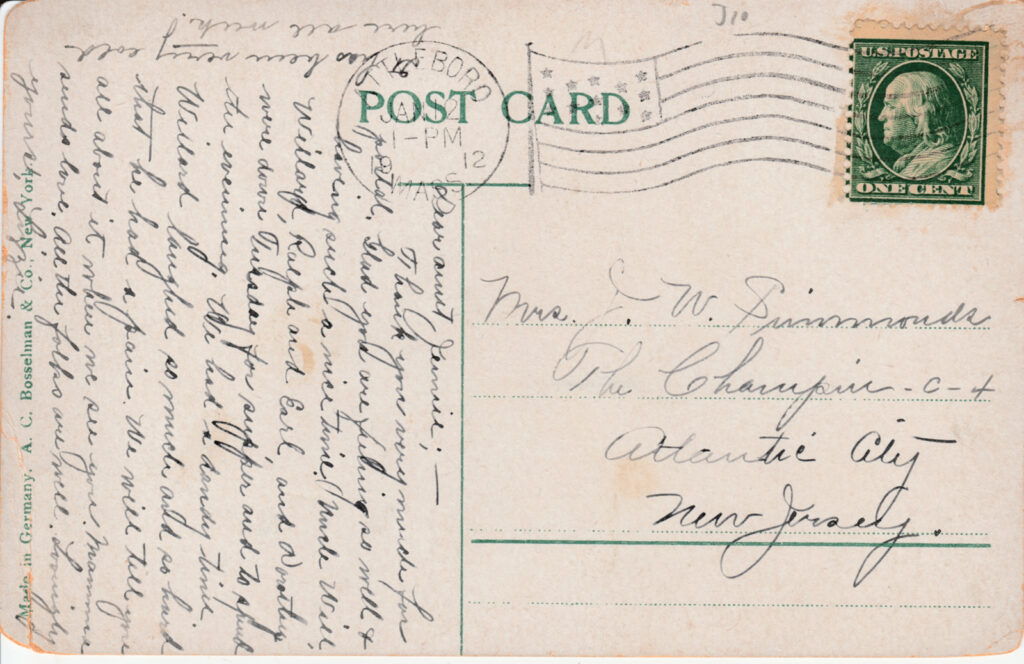 POST CARD
U.S. POSTAGE
ONE CENT
JAN
1-PM
12
MASS
Dear aunt Jennie; —
Thank you very much for
postal. Glad you are feeling so well &
having such a nice time. Uncle Will,
Willard, Ralph and Earl and Dorothy
were down Tuesday for supper and to spend
the evening. We had a dandy time
Willard laughed so much and so hard
that he had a pain. We will tell you
all about it when we see you. Mamma
sends love. All the folks are well. Lovingly
yours,
has been very cold
here all week!
Mrs. J. W. Simmonds
The
Atlantic City
New Jersey.
Made in Germany. A. C. Bosselman & Co., New York